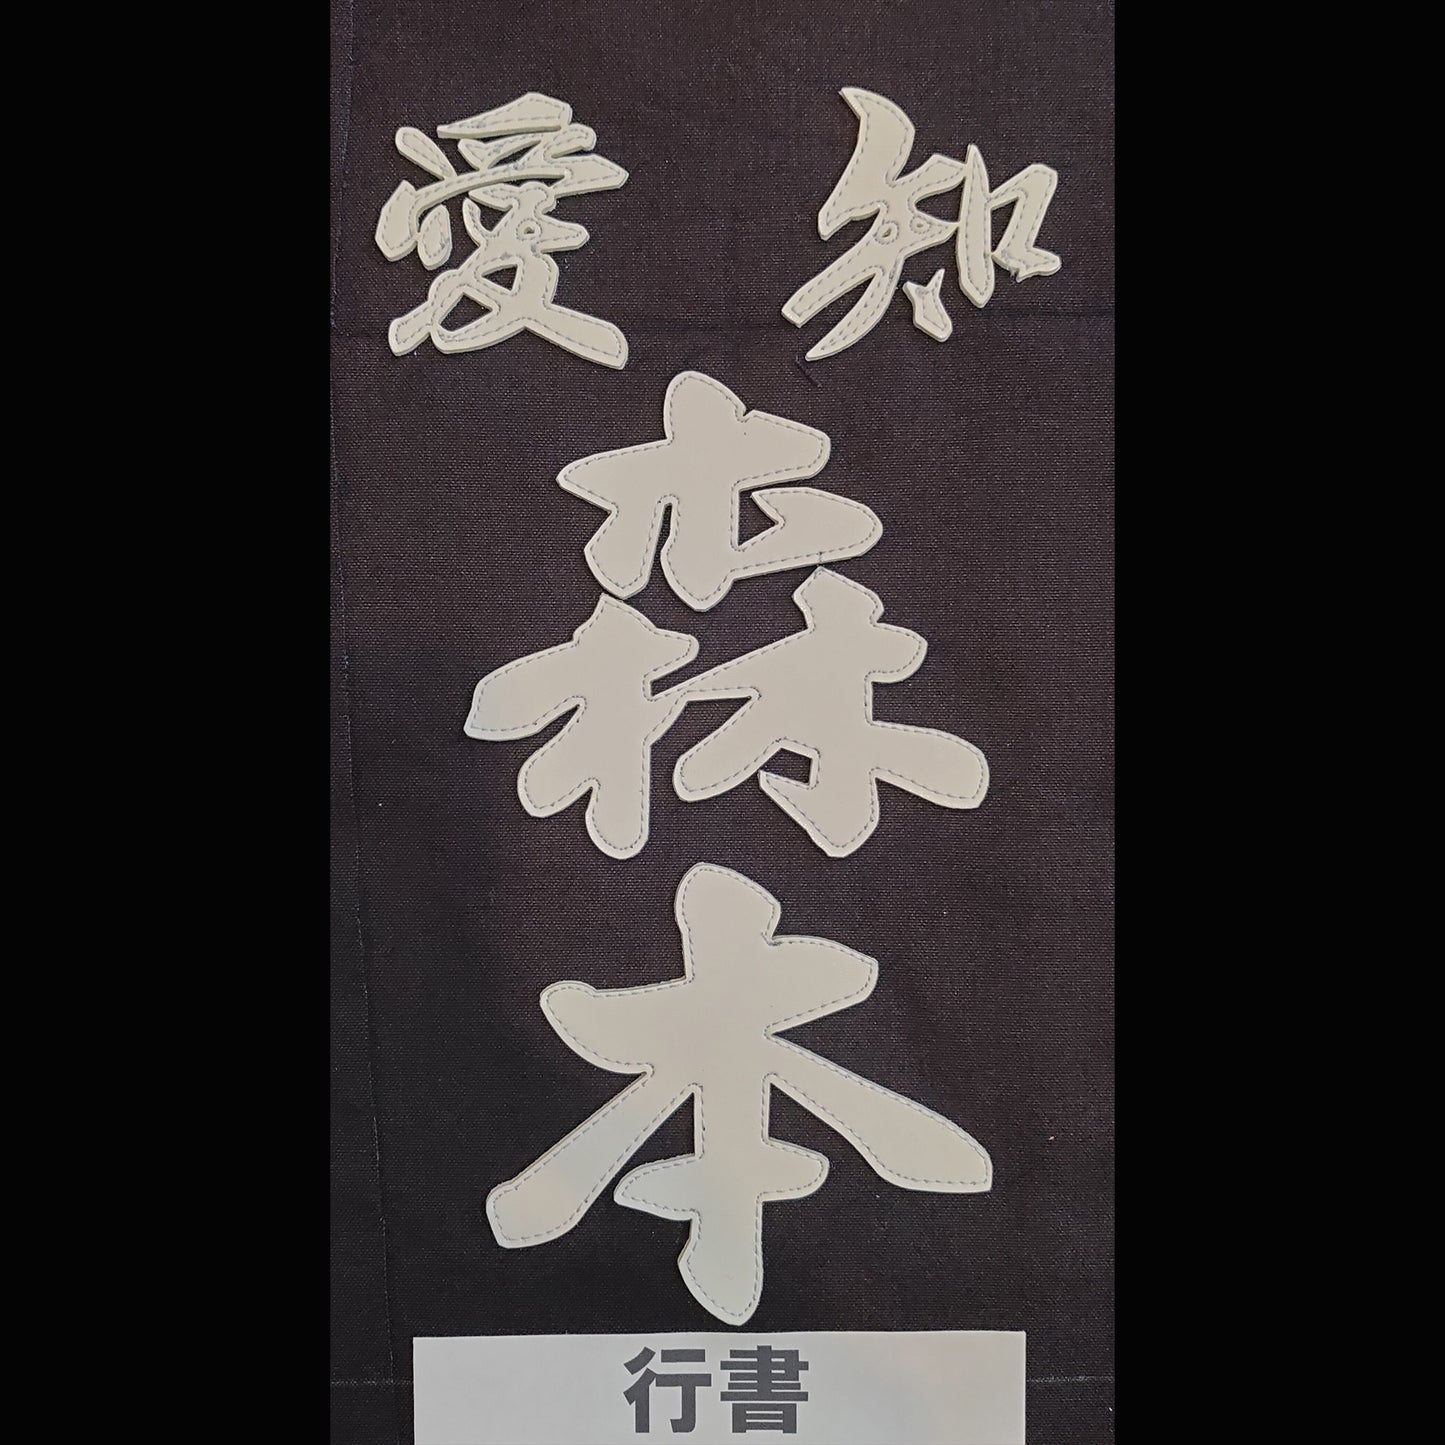 愛知
森
本
行書